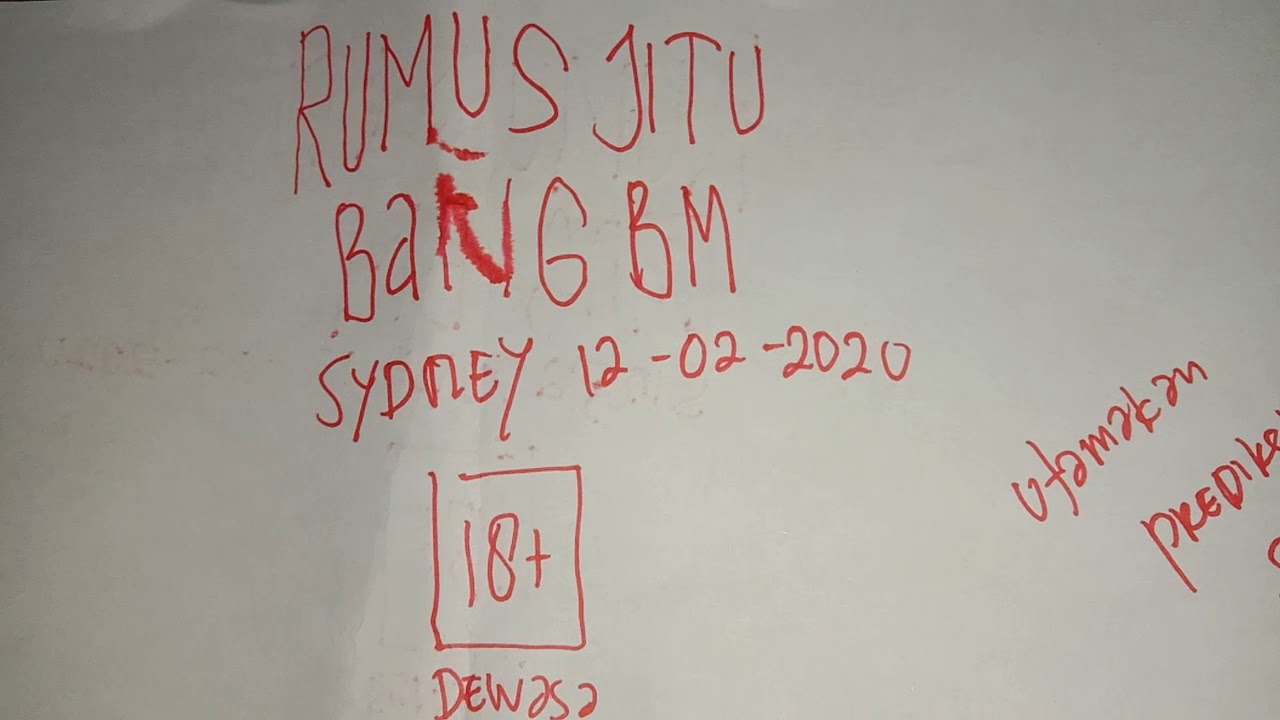 RUMUS JITU
BaNG BM
SYDNEY 12-02-2020
18+
DEWasa
utamakan